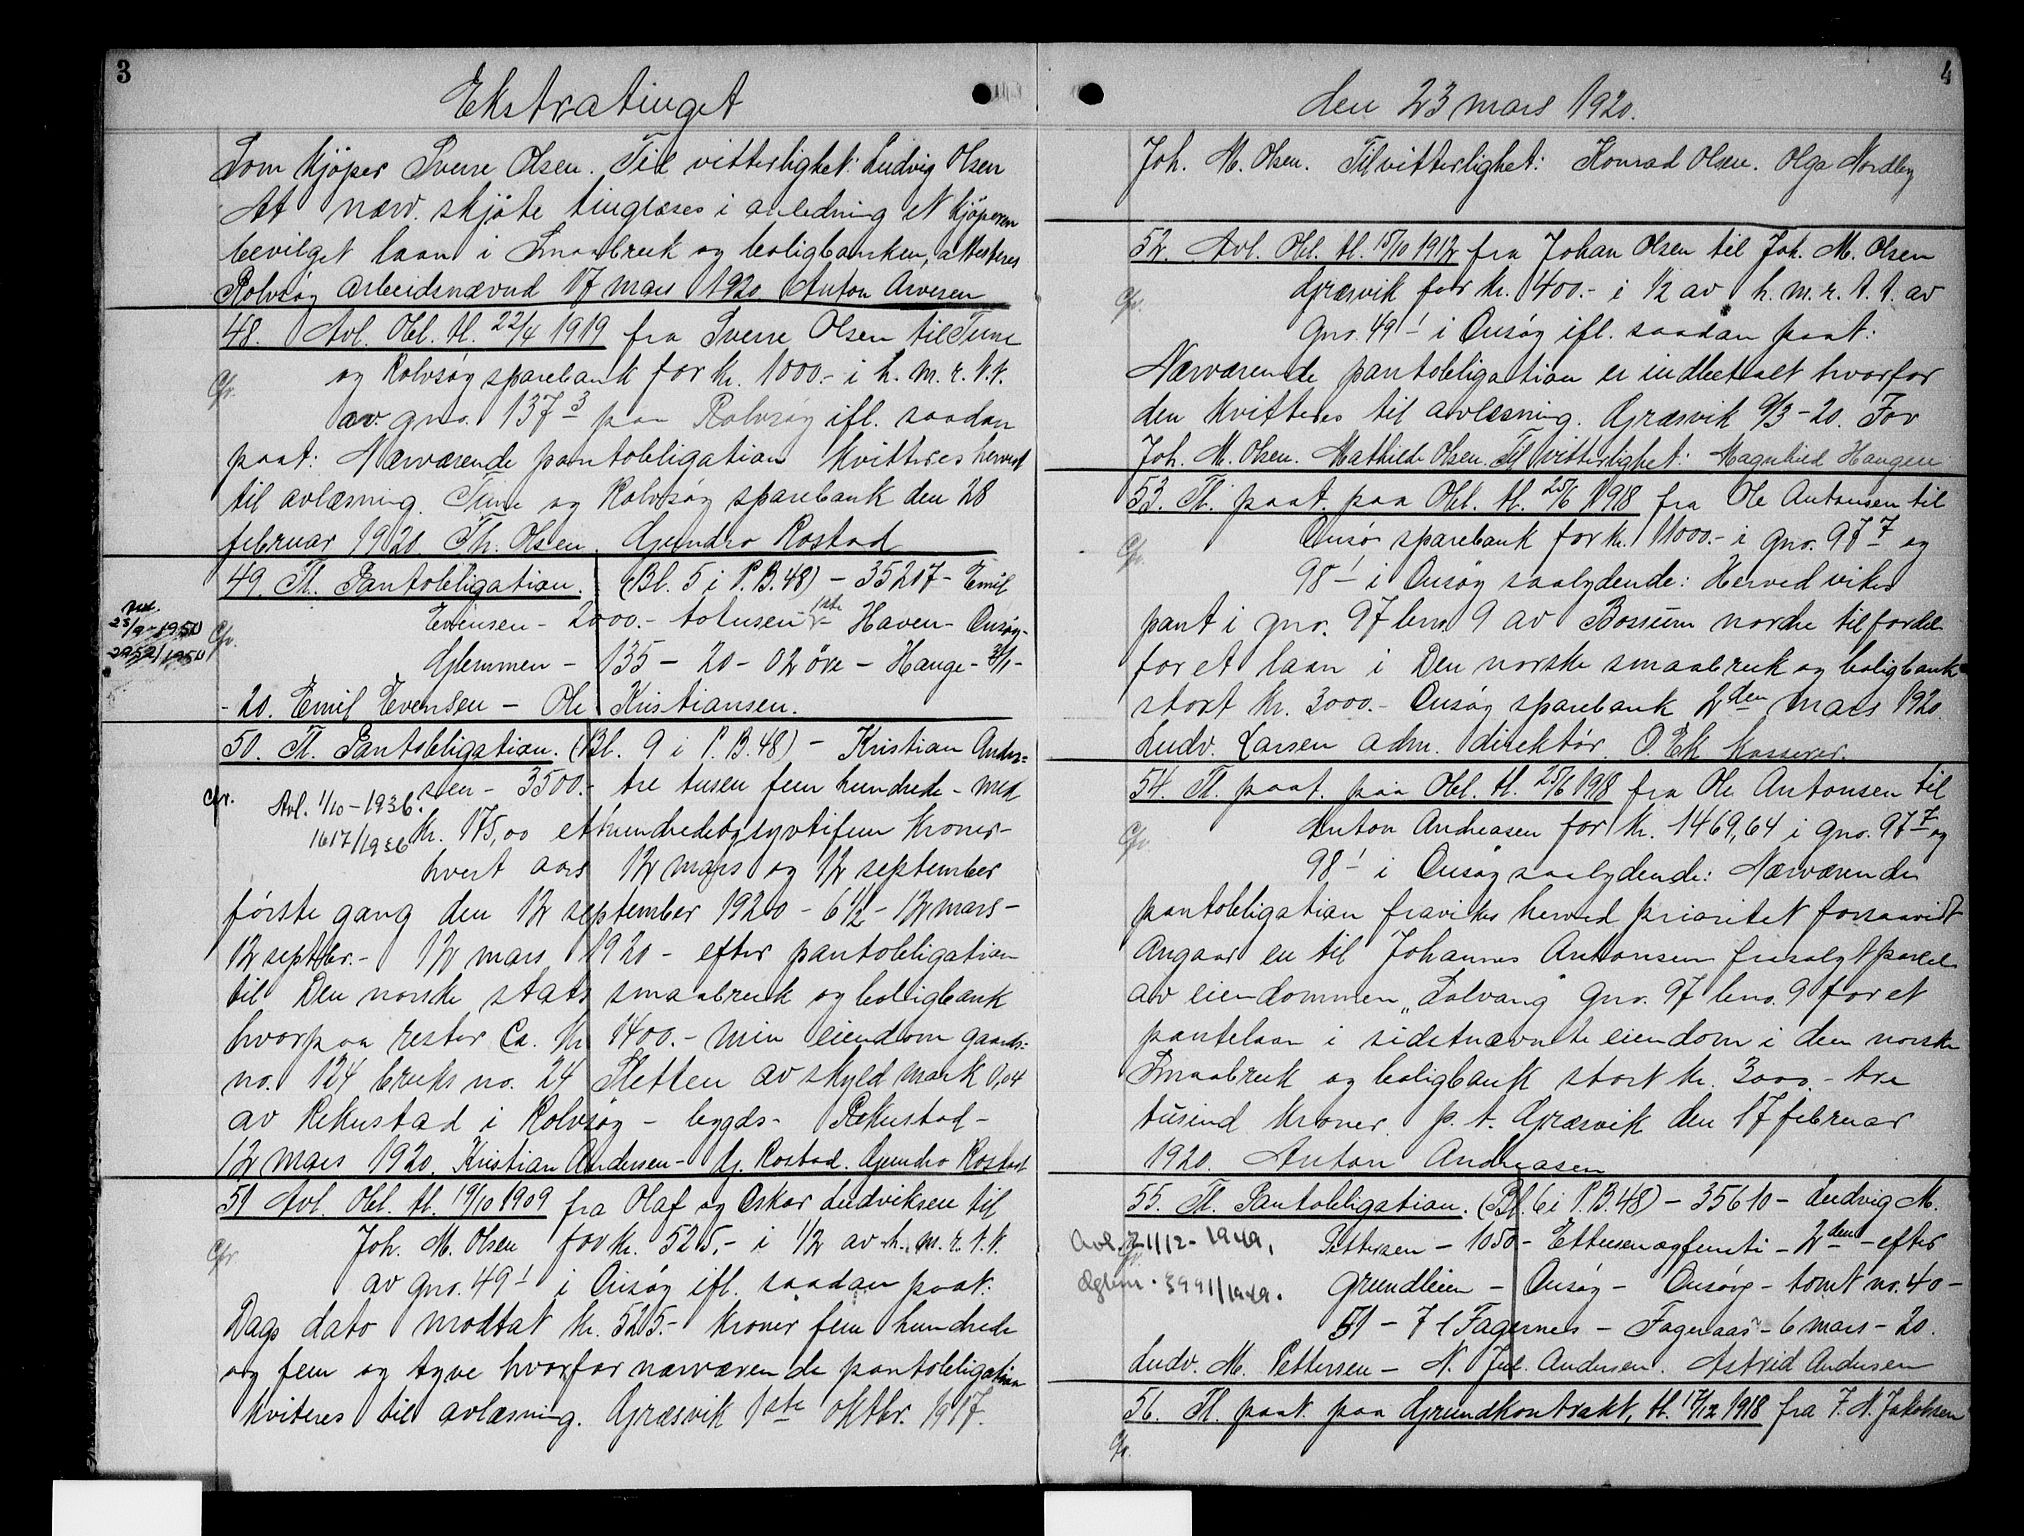 3
Ekstratinget
Som kjøper Sverre Olsen. Til vitterlighet: Ludvig Olsen
At nærv. skjøte tinglæses i anledning et kjøperen
bevilget laan i Smaabruk og boligbanken, attesteres
Rolvsøy arbeidsnævnd 17 mars 1920 Anton Arvesen
48. Avl. Obl. tl. 22/4 1919 fra Sverre Olsen til Tune
Cfr. og Rolvsøy sparebank for kr. 1000.- i h. m. r. t. t.
av gno. 137 3 paa Rolvsøy ifl. saadan
paat: Nærværende pantobligation kvitteres herved
til avlæsning. Tune og Rolvsøy sparebank den 28
februar 1920. Th. Olsen. Gjendro Rostad
49. Tl. Pantobligation. (Bl. 5 i P.B. 48) - 35207 - Emil
Cfr. Evensen - 2000.- totusen - 1ste - Haven - Onsøy -
23/9-1950
2952/1950
Glemmen - 135 - 20 - 02 øre - Hauge - 3/1 -
- 20. Emil Evensen - Ole Kristiansen.
50. Tl. Pantobligation. (Bl. 9 i P.B. 48) - Kristian Ander-
cfr. sen - 3500.- tre tusen fem hundrede - med
Avl. 1/10 - 1936.
1617/1936
kr. 175,00 ethundredeogsyvtifem kroner -
hvert aars 12 mars og 12 september
første gang den 12 september 1920 - 6 1/2 - 12 mars -
12 septbr. - 12 mars 1920 - efter pantobligation
til Den norske stats smaabruk og boligbank
hvorpaa rester Ca. kr. 1400.- min eiendom gaards-
no. 124 bruks no. 24 Sletten av skyld mark 0,04
av Rekustad i Rolvsøy - bygds - Rekustad -
12 mars 1920. Kristian Andersen - G. Rostad. Gjendro Rostad
51 Avl. Obl. tl. 19/10 1909 fra Olaf og Oskar Ludviksen til
Cfr Joh. M. Olsen for kr. 525,- i 1/2 av h. m. r. t. t.
av gno. 49 1 i Onsøy ifl. saadan paat:
Dags dato modtat kr. 525.- kroner fem hundrede
og fem og tyve hvorfor nærværende pantobligation
kviteres til avlæsning. Græsvik 1ste oktbr. 1917.
4
den 23 mars 1920.
Joh. M. Olsen. Til vitterlighet: Konrad Olsen. Olga Nordby
52. Avl. Obl. tl. 15/10 1912 fra Johan Olsen til Joh. M. Olsen
Cfr. Græsvik for kr. 400.- i 1/2 av h. m. r. t. t. av
gno. 49 1 i Onsøy ifl. saadan paat:
Nærværende pantobligation er indbetalt hvorfor
den kvitteres til avlæsning. Græsvik 9/3-20. For
Joh. M. Olsen. Mathilde Olsen. Til vitterlighet: Magnhild Haugen
53. Tl. paat. paa Obl. tl. 25/6 1918 fra Ole Antonsen til
Cfr. Onsø sparebank for kr. 11000.- i gno. 97 7 og
98 1 i Onsøy saalydende: Herved vikes
pant i gno. 97 bno. 9 av Bossum nordre til fordel
for et laan i Den norske smaabruk og boligbank
stort kr. 3000.- Onsøy sparebank 2den mars 1920.
Ludv. Larsen adm. direktør. O. Ek kasserer.
54. Tl. paat. paa Obl. tl. 25/6 1918 fra Ole Antonsen til
Cfr. Anton Andreasen for kr. 1469,64 i gno. 97 7 og
98 1 i Onsøy saalydende: Nærværende
pantobligation fravikes herved prioritet forsaavidt
angaar en til Johannes Antonsen frasolgt parcel
av eiendommen "Solvang" gno. 97 bno. 9 for et
pantelaan i sidstnævnte eiendom i den norske
Smaabruk og boligbank stort kr. 3000.- tre
tusind kroner. p. t. Græsvik den 17 februar
1920. Anton Andreasen
55. Tl. Pantobligation. (Bl. 6 i P.B. 48) - 35610 - Ludvig M.
Avl. 21/12 - 1949. Pettersen - 1050 - Ettusenogfemti - 2den - efter
Dgbnr. 3991/1949. grundleien - Onsøy - Onsøy - tomt no. 40 -
51 - 7 - Fagernes - Fageraas - 6 mars - 20.
Ludv. M. Pettersen - N. Jul. Andersen. Astrid Andersen
56. Tl. paat. paa Grundkontrakt, tl. 17/12 1918 fra F. N. Jakobsen
Cfr.